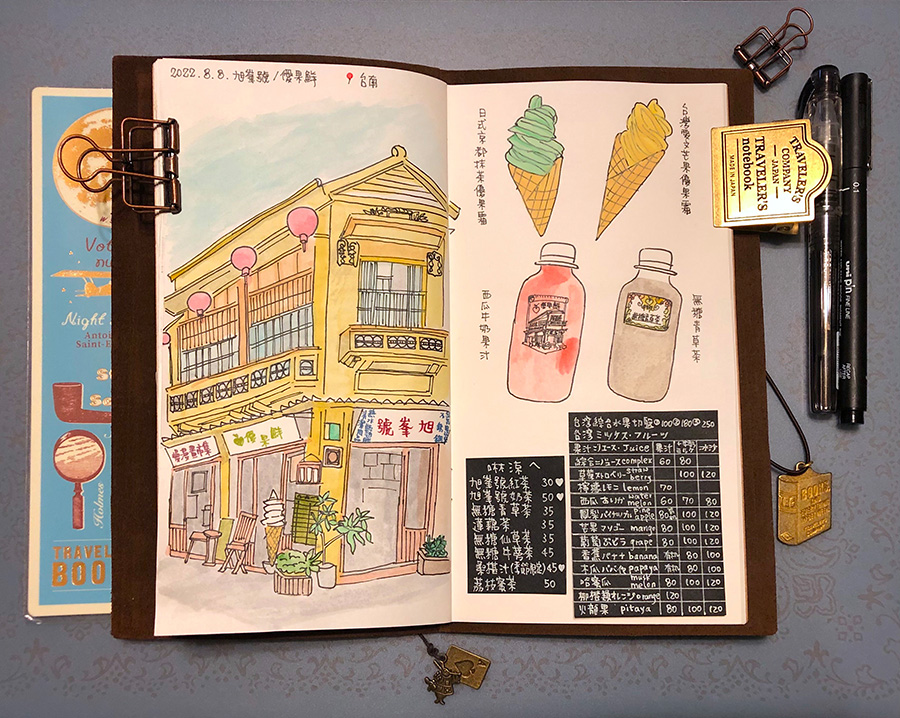 2022.8.8. 旭峯號/優果鮮 台南
旭峯號
優果鮮
日式京都抹茶優果霜
台灣愛文芒果優果霜
西瓜牛奶果汁
無糖青草茶
TRAVELER'S
COMPANY
JAPAN
TRAVELER'S
notebook
MADE IN JAPAN
0.1
uni pin
FINE LINE
Night
Saint-E
Holmes
TRAVEL
BOO
啉涼へ
旭峯號紅茶 30♥
旭峯號奶茶 50♥
無糖青草茶 35
蓮藕茶 35
無糖仙草茶 35
無糖牛蒡茶 45
楊桃汁(季節限定)45♥
荔枝蜜茶 50
台灣綜合水果切盤㊥100㊥180㊥250
台湾ミックス・フルーツ
果汁ジュース・Juice 果汁
綜合ジュースcomplex 60 80
草莓ストロベリー straw berry 100 120
檸檬レモン lemon 70
西瓜 water melon 60 70 80
鳳梨パイナップル pine apple 80 100 120
芒果マンゴー mango 80 100 120
葡萄ぶどう grape 80 100 120
香蕉バナナ banana 80 100
木瓜パパイヤ papaya 80 100
哈蜜瓜 musk melon 80 100 120
柳橙オレンジ orange 120
火龍果 pitaya 80 100 120